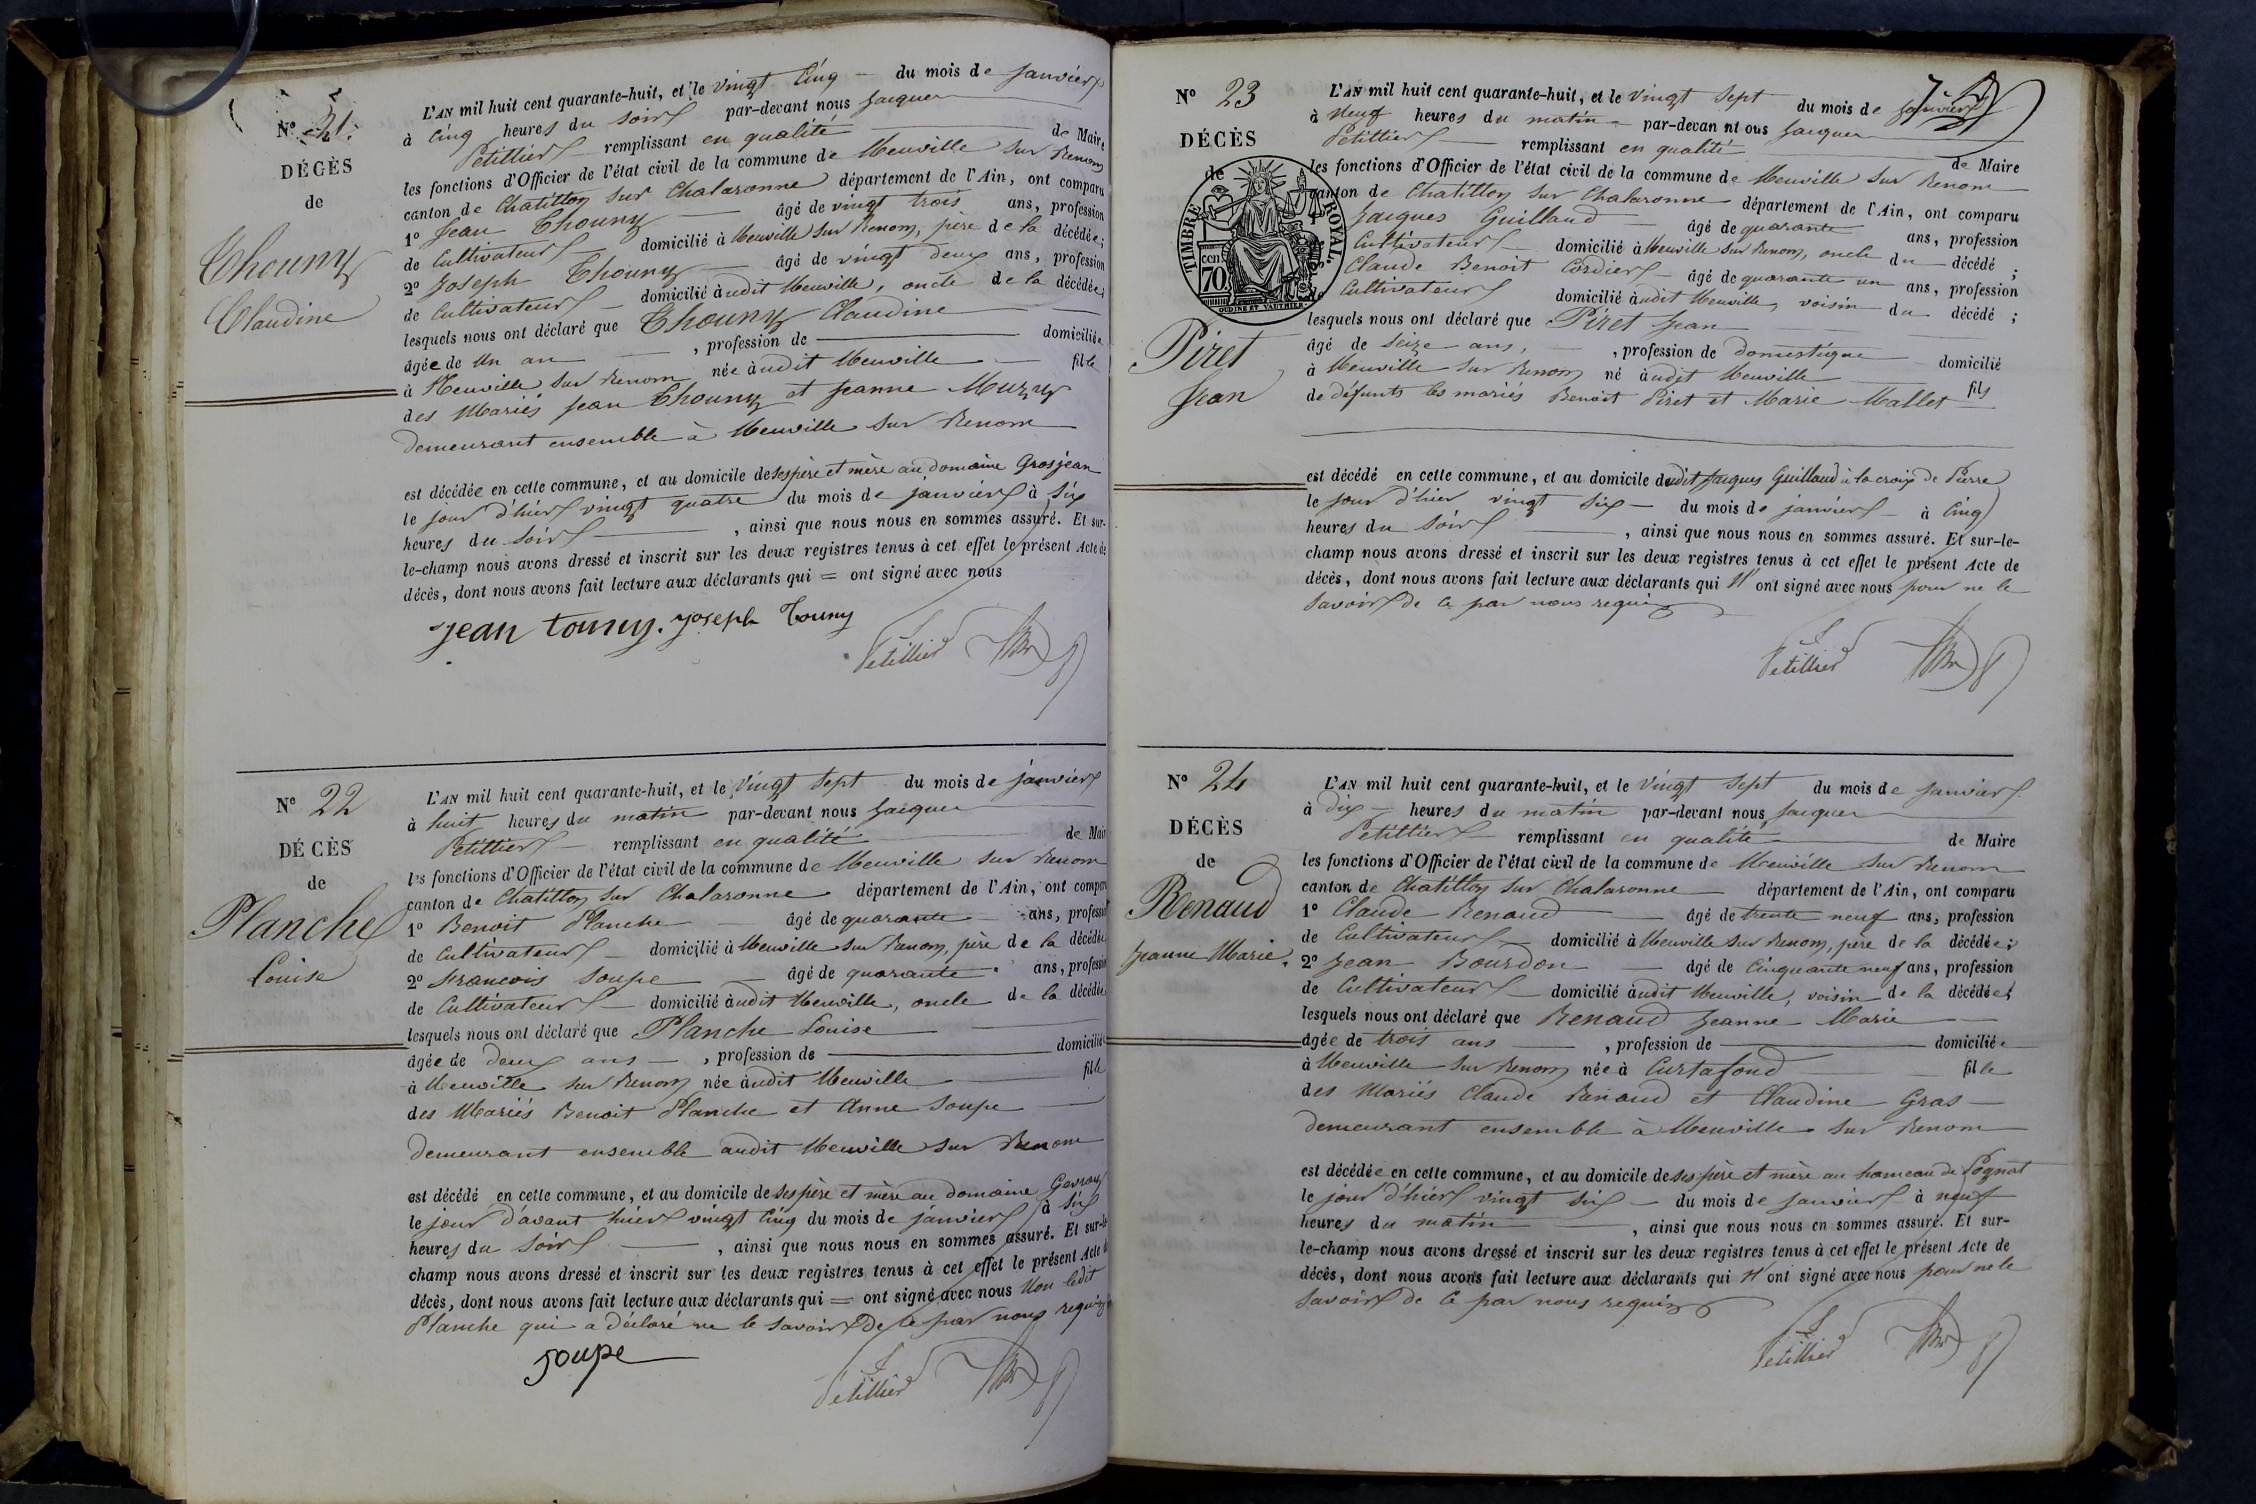 Nº 21.
DÉCÈS
de
Thouny
Claudine
L'AN mil huit cent quarante-huit, et le vingt Cinq du mois de Janvier
à Cinq heures du soir par-devant nous Jacques
Petittier remplissant en qualité de Maire
les fonctions d'Officier de l'état civil de la commune de Neuville sur Renom
canton de Chatillon sur Chalaronne département de l'Ain, ont comparu
1º Jean Thouny âgé de vingt trois ans, profession
de Cultivateur domicilié à Neuville sur Renom, père de la décédée;
2º Joseph Thouny âgé de vingt deux ans, profession
de Cultivateur domicilié àudit Neuville, oncle de la décédée;
lesquels nous ont déclaré que Thouny Claudine
âgée de Un an , profession de domiciliée
à Neuville sur Renom née àudit Neuville fille
des Mariés Jean Thouny et Jeanne Muzny
demeurant ensemble à Neuville sur Renom
est décédée en cette commune, et au domicile de ses père et mère au domaine Grosjean
le jour d'hier vingt quatre du mois de janvier à six
heures du soir , ainsi que nous nous en sommes assuré. Et sur-
le-champ nous avons dressé et inscrit sur les deux registres tenus à cet effet le présent Acte de
décès, dont nous avons fait lecture aux déclarants qui = ont signé avec nous
jean touny. joseph Touny
Petittier
Nº 22
DÉCÈS
de
Planche
Louise
L'AN mil huit cent quarante-huit, et le Vingt Sept du mois de janvier
à huit heures du matin par-devant nous Jacques
Petittier remplissant en qualité de Mair
les fonctions d'Officier de l'état civil de la commune de Neuville sur Renom
canton de Chatillon sur Chalaronne département de l'Ain, ont compar
1º Benoit Planche âgé de quarante ans, profession
de Cultivateur domicilié à Neuville sur Renom, père de la décédée
2º François Soupe âgé de quarante ans, profession
de Cultivateur domicilié àudit Neuville, oncle de la décédée
lesquels nous ont déclaré que Planche Louise
âgée de deux ans , profession de domiciliée
à Neuville sur Renom née àudit Neuville fille
des Mariés Benoit Planche et Anne Soupe
demeurant ensemble audit Neuville sur Renom
est décédé en cette commune, et au domicile de ses père et mère au domaine Gevray
le jour d'avant hier vingt cinq du mois de janvier à six
heures du soir , ainsi que nous nous en sommes assuré. Et sur-le
champ nous avons dressé et inscrit sur les deux registres tenus à cet effet le présent Acte de
décès, dont nous avons fait lecture aux déclarants qui = ont signé avec nous Non ledit
Planche qui a déclaré ne le savoir de ce par nous requis
soupe
Petittier
Nº 23
DÉCÈS
de
TIMBRE ROYAL.
70 cen
OUDINE ET VAUTHIER.
Piret
Jean
L'AN mil huit cent quarante-huit, et le vingt sept du mois de janvier
à neuf heures du matin par-devan nt ous Jacques
Petittier remplissant en qualité de Maire
les fonctions d'Officier de l'état civil de la commune de Neuville sur Renom
canton de Chatillon sur Chalaronne département de l'Ain, ont comparu
Jacques Guilland âgé de quarante ans, profession
Cultivateur domicilié à Neuville sur Renom, oncle du décédé ;
Claude Benoit Cordier âgé de quarante un ans, profession
de Cultivateur domicilié àudit Neuville, voisin du décédé ;
lesquels nous ont déclaré que Piret Jean
âgé de seize ans, , profession de domestique domicilié
à Neuville sur Renom né àudit Neuville fils
de défunts les mariés Benoit Piret et Marie Mallet
est décédé en cette commune, et au domicile dudit Jacques Guilland à la croix de Pierre
le jour d'hier vingt six du mois de janvier à Cinq
heures du soir , ainsi que nous nous en sommes assuré. Et sur-le-
champ nous avons dressé et inscrit sur les deux registres tenus à cet effet le présent Acte de
décès, dont nous avons fait lecture aux déclarants qui N' ont signé avec nous pour ne le
savoir de ce par nous requis
Petittier
Nº 24
DÉCÈS
de
Renaud
Jeanne Marie.
L'AN mil huit cent quarante-huit, et le Vingt Sept du mois de Janvier
à dix heures du matin par-devant nous Jacques
Petittier remplissant en qualité de Maire
les fonctions d'Officier de l'état civil de la commune de Neuville sur Renom
canton de Chatillon sur Chalaronne département de l'Ain, ont comparu
1º Claude Renaud âgé de trente neuf ans, profession
de Cultivateur domicilié à Neuville sur Renom, père de la décédée;
2º Jean Bourdon âgé de Cinquante neuf ans, profession
de Cultivateur domicilié àudit Neuville, voisin de la décédée;
lesquels nous ont déclaré que Renaud Jeanne Marie
âgée de trois ans , profession de domiciliée
à Neuville sur Renom née à Curtafond fille
des Mariés Claude Renaud et Claudine Gras
demeurant ensemble à Neuville sur Renom
est décédée en cette commune, et au domicile de ses père et mère au hameau de Pognat
le jour d'hier vingt six du mois de Janvier à neuf
heures du matin , ainsi que nous nous en sommes assuré. Et sur-
le-champ nous avons dressé et inscrit sur les deux registres tenus à cet effet le présent Acte de
décès, dont nous avons fait lecture aux déclarants qui N' ont signé avec nous pour ne le
savoir de ce par nous requis
Petittier